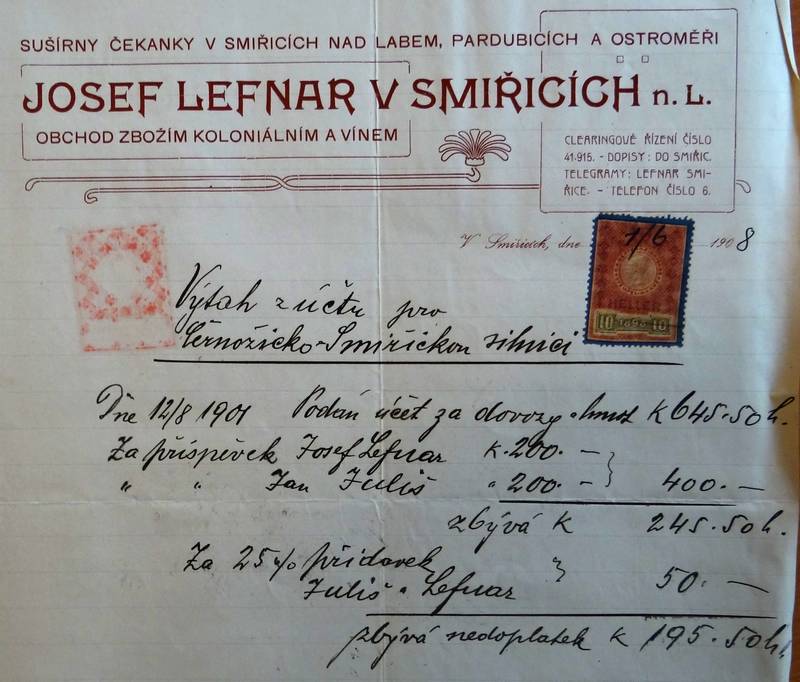 SUŠÍRNY ČEKANKY V SMIŘICÍCH NAD LABEM, PARDUBICÍCH A OSTROMĚŘI
JOSEF LEFNAR V SMIŘICÍCH n. L.
OBCHOD ZBOŽÍM KOLONIÁLNÍM A VÍNEM
CLEARINGOVÉ ŘÍZENÍ ČÍSLO
41.915. - DOPISY: DO SMIŘIC.
TELEGRAMY: LEFNAR SMI-
ŘICE. - TELEFON ČÍSLO 6.
V Smiřicích, dne 1/6 1908
HELLER
10 1898 10
Výtah z účtu pro
Černožicko-Smiřičkou silnici
Dne 12/8 1901 Podán účet za dovozy hmot K 645.50h.
Za příspěvek Josef Lefnar K. 200. —
" " Jan Juliš " 200. — 400. —
zbývá K 245.50h.
Za 25% přídavek
Juliš a Lefnar 50. —
zbývá nedoplatek K 195.50h.